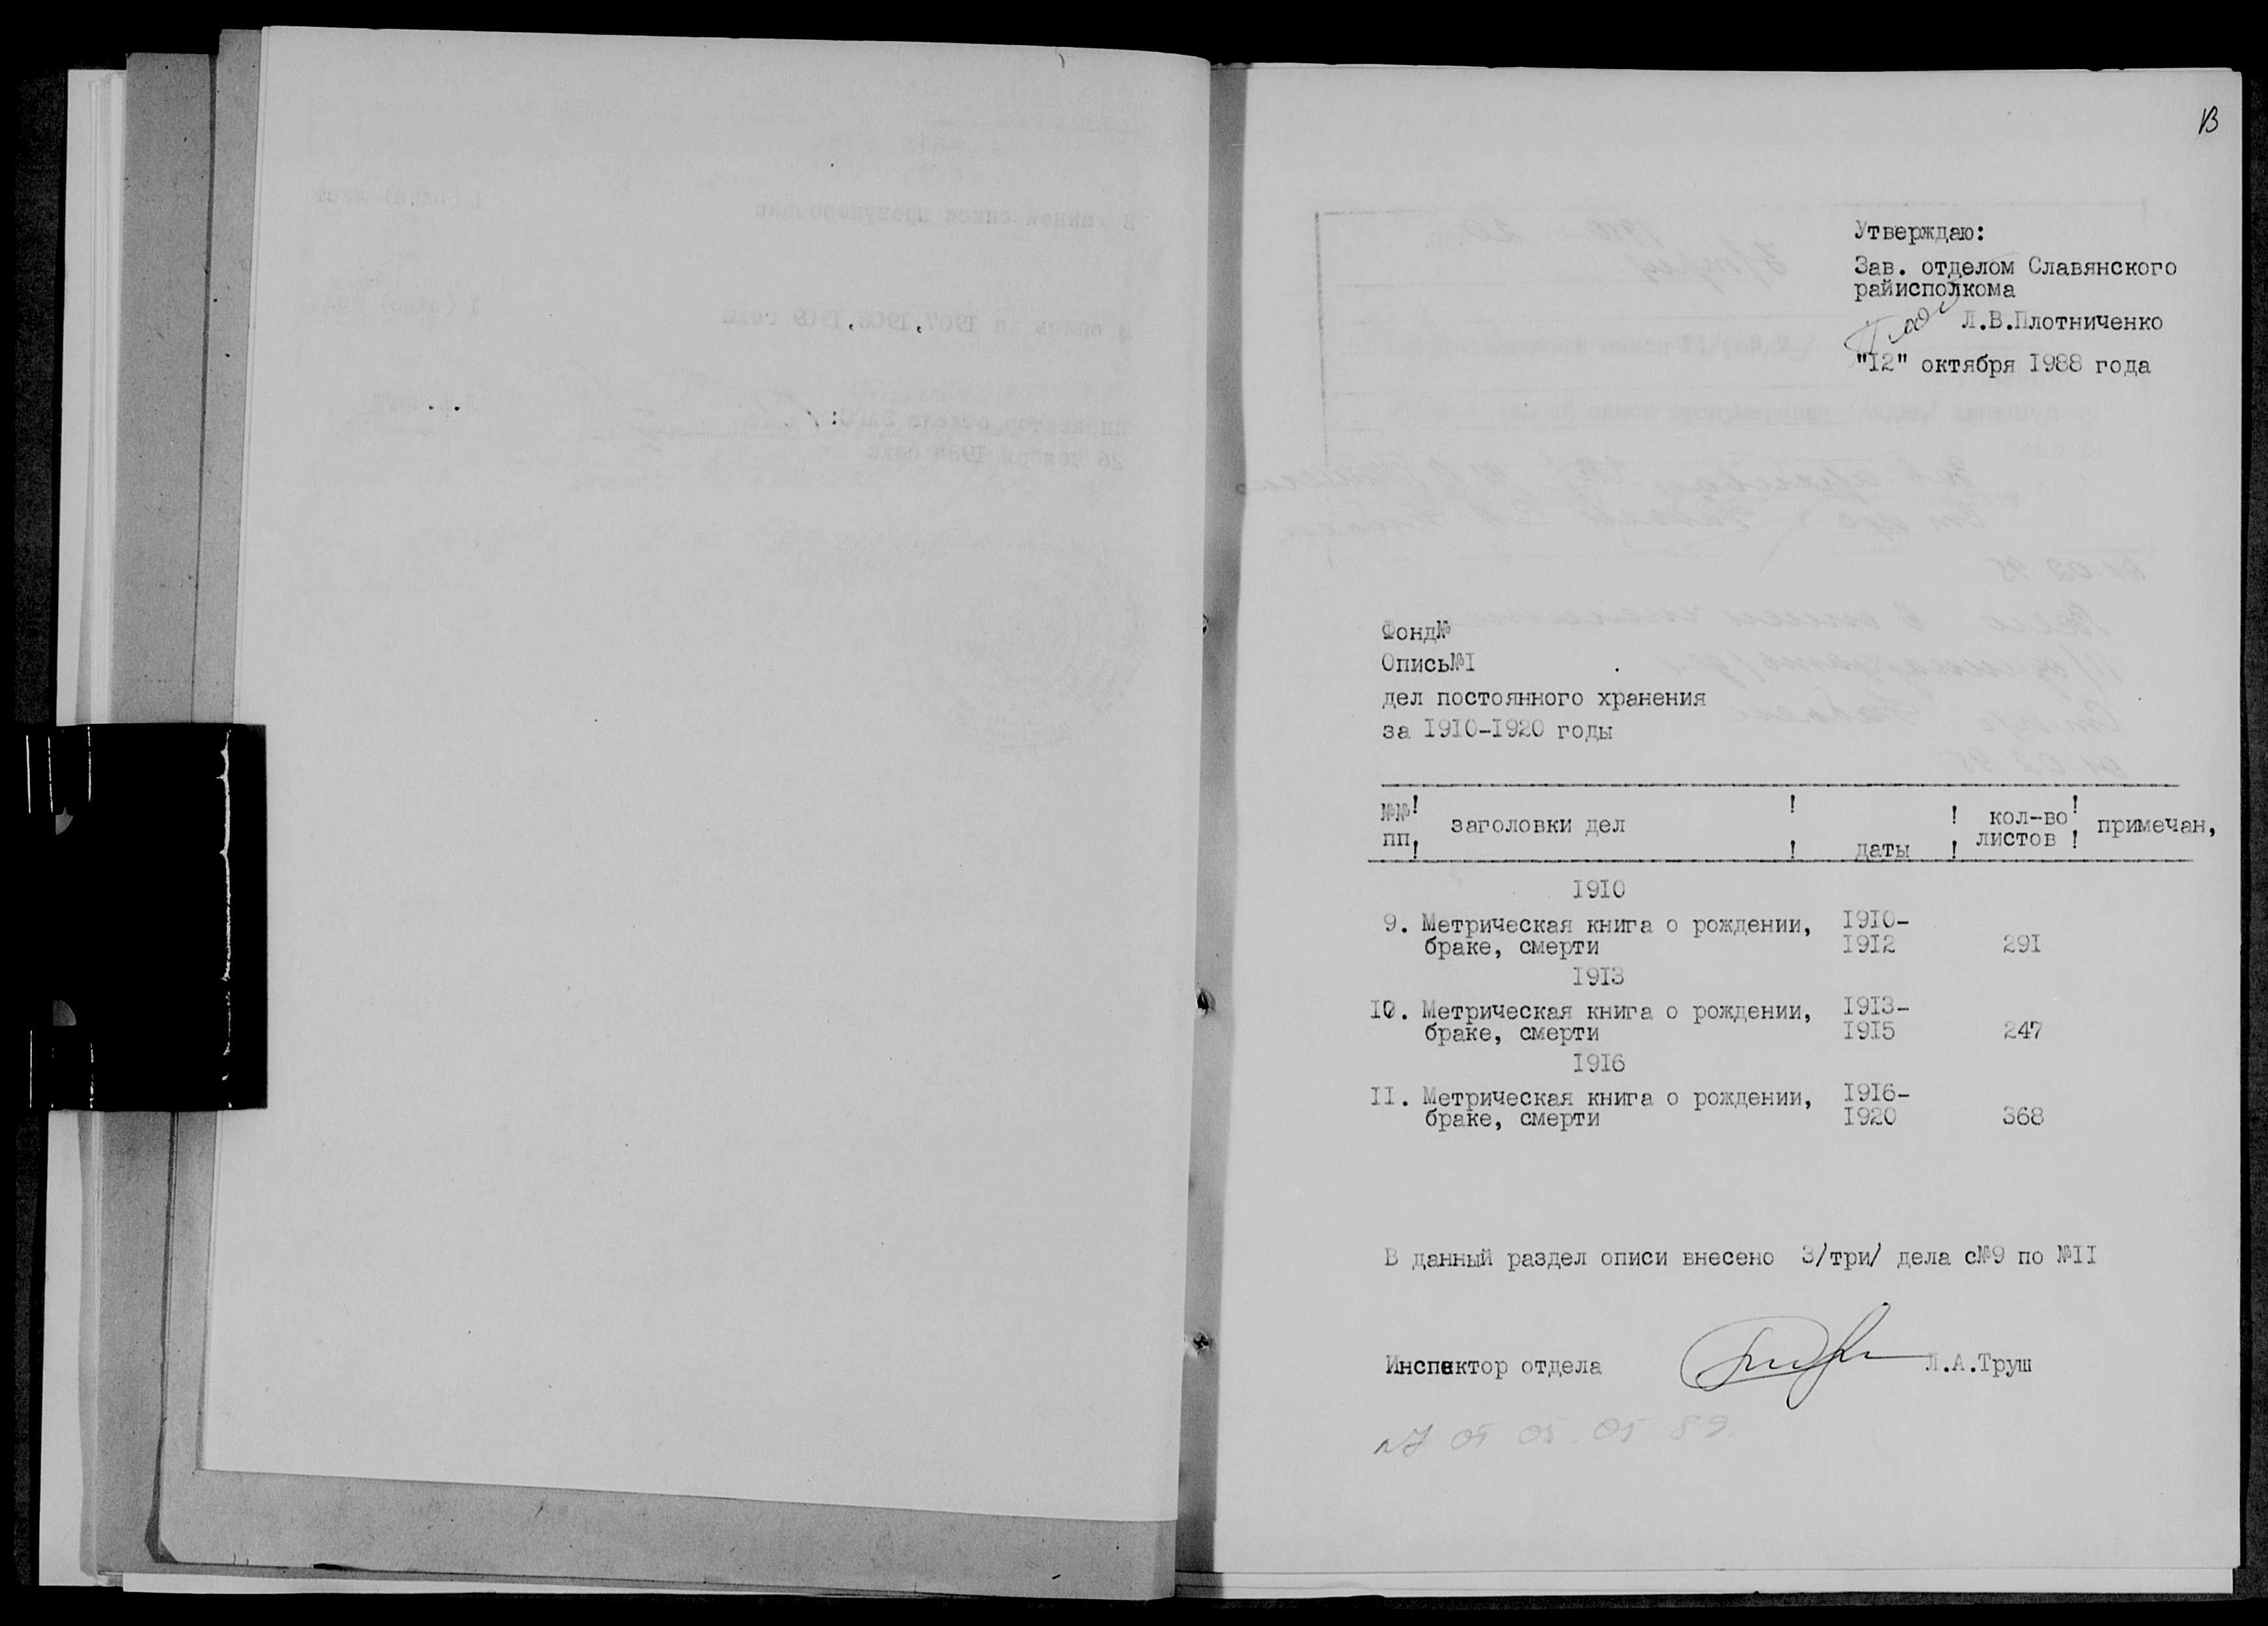 Утверждаю:
Зав. отделом Славянского
райисполкома
Л.В.Плотниченко
"12" октября 1988 года
Фонд№
Опись№I
дел постоянного хранения
за 1910-1920 годы
№№ ! заголовки дел ! даты ! кол-во ! примечан,
пп, ! ! ! листов !
1910
9. Метрическая книга о рождении, 1910-
браке, смерти 1912 291
1913
10. Метрическая книга о рождении, 1913-
браке, смерти 1915 247
1916
II. Метрическая книга о рождении, 1916-
браке, смерти 1920 368
В данный раздел описи внесено 3/три/ дела с№9 по №II
Инспектор отдела Л.А.Труш
05 05. 05 89